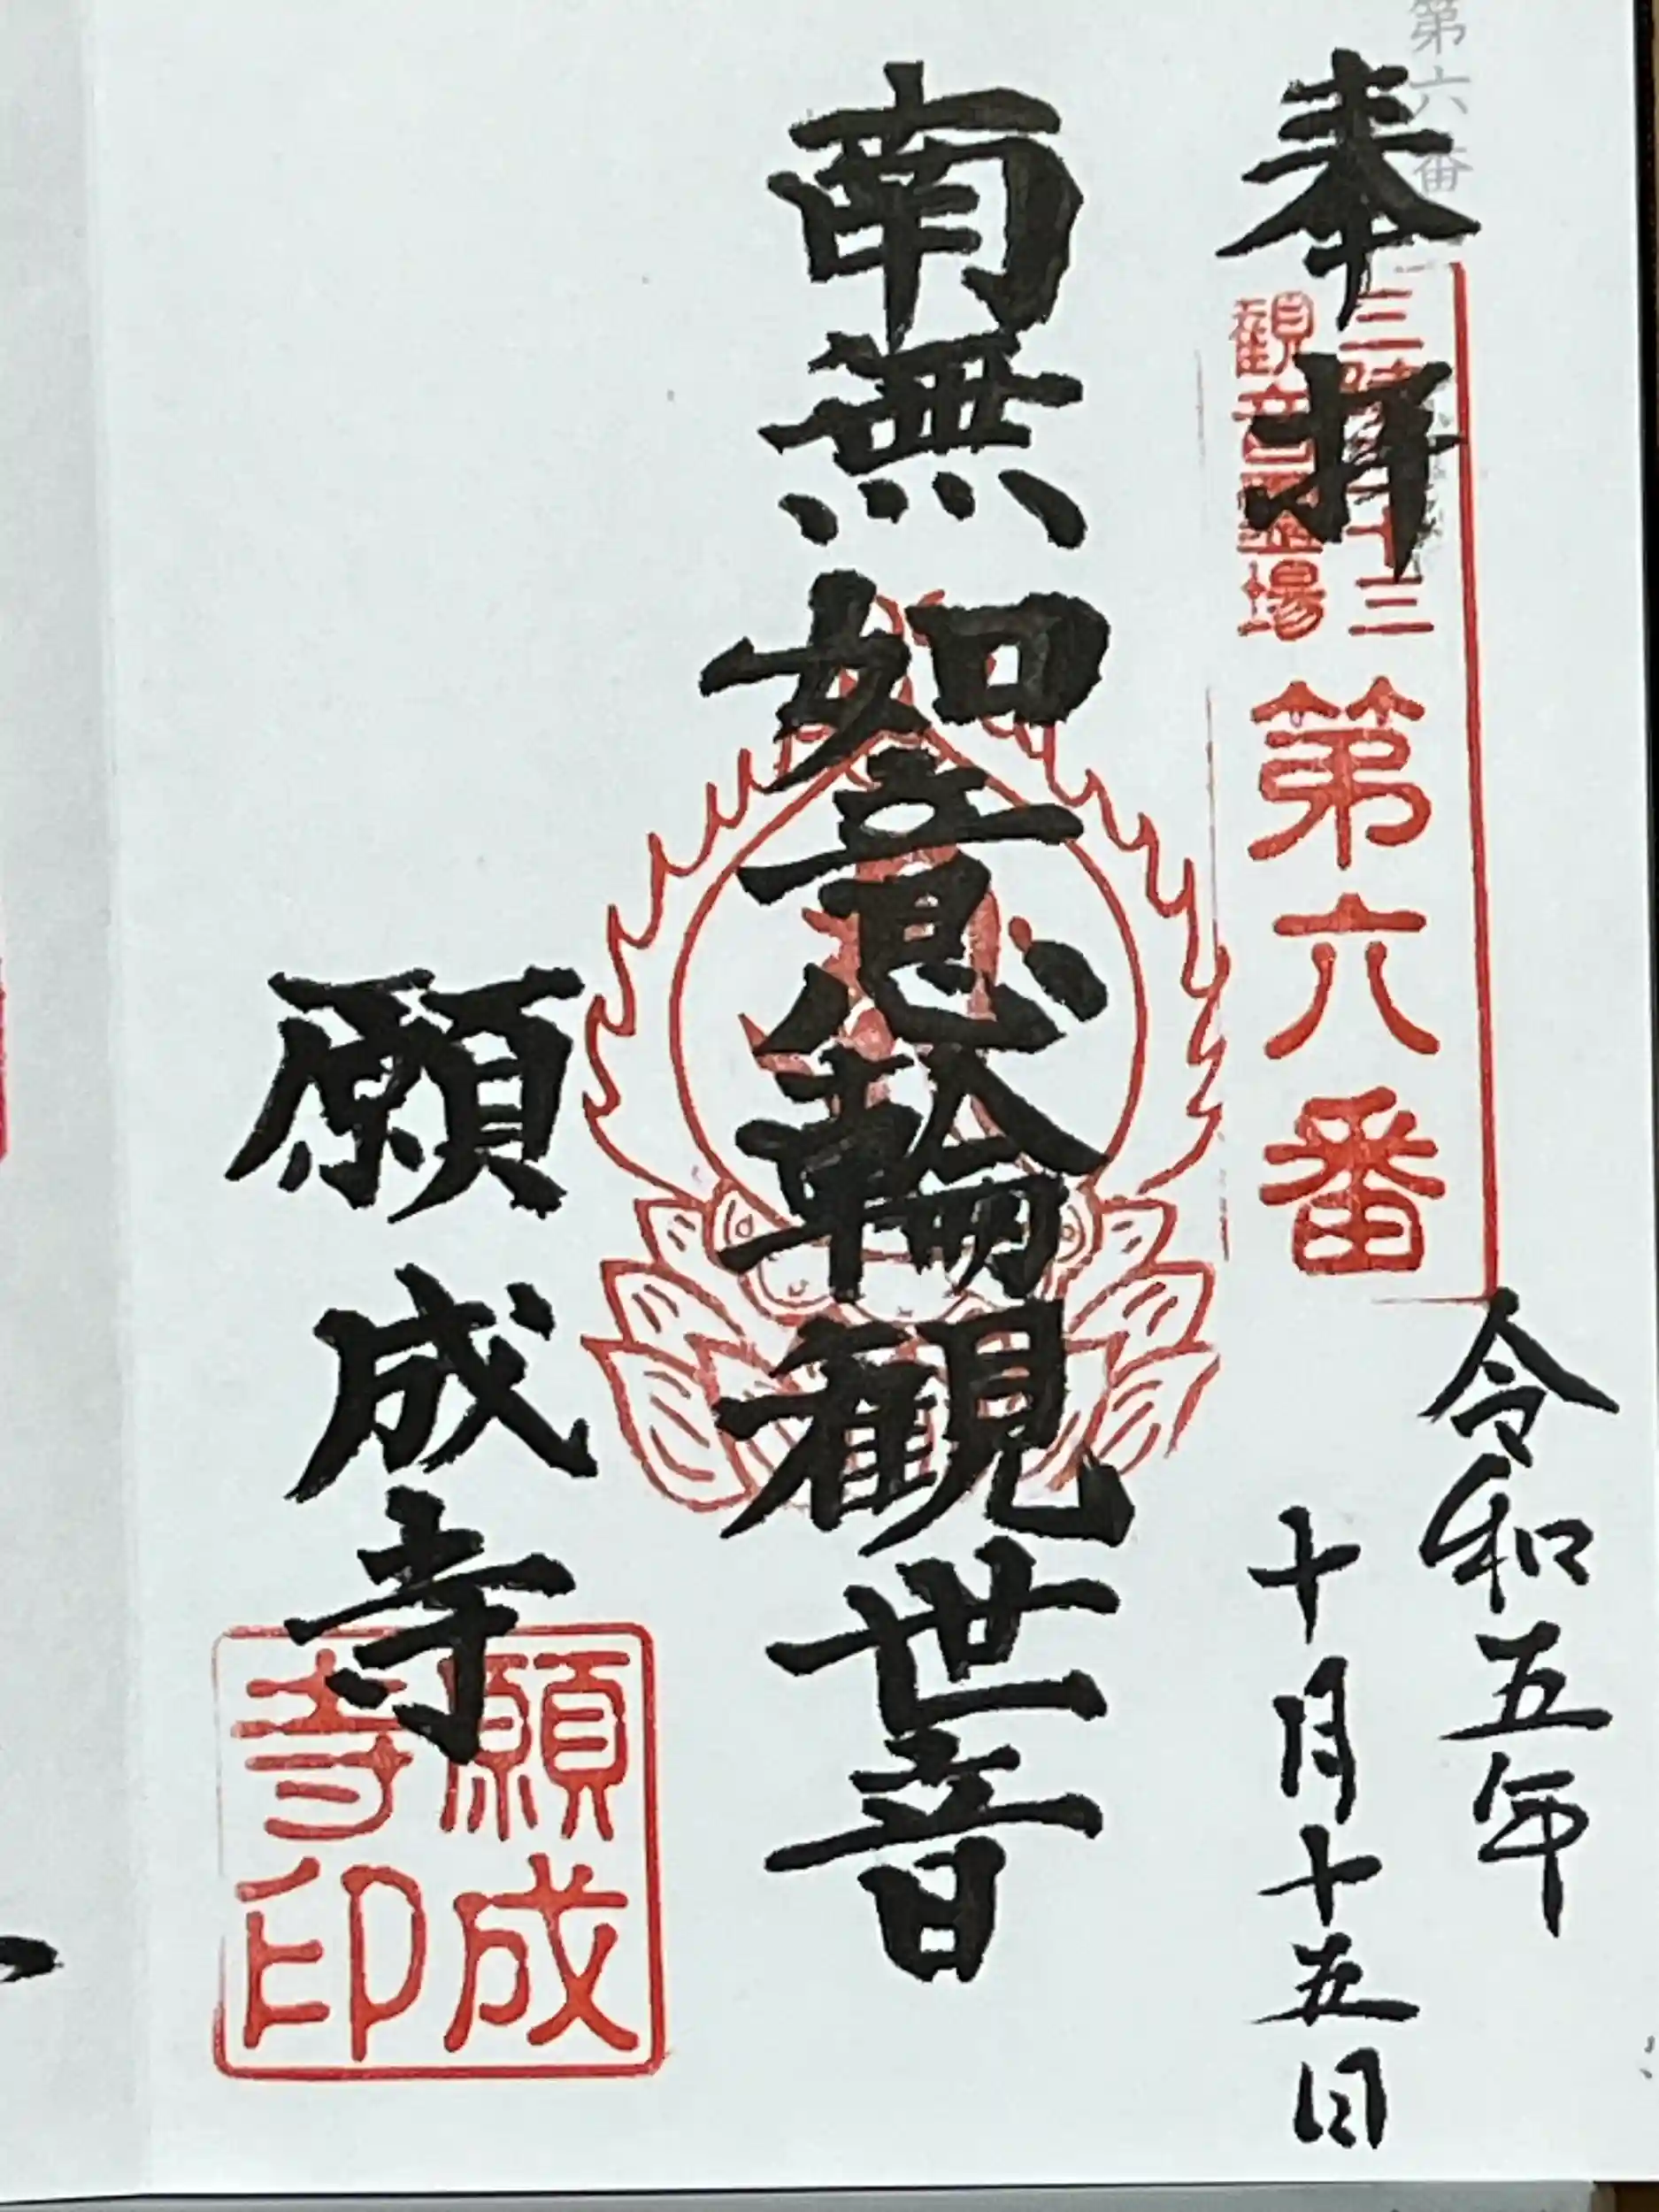 第六番
奉拝
令和五年
十月十五日
三
十三
観音霊場
第六番
南無如意輪観世音
願成寺
願成
寺印